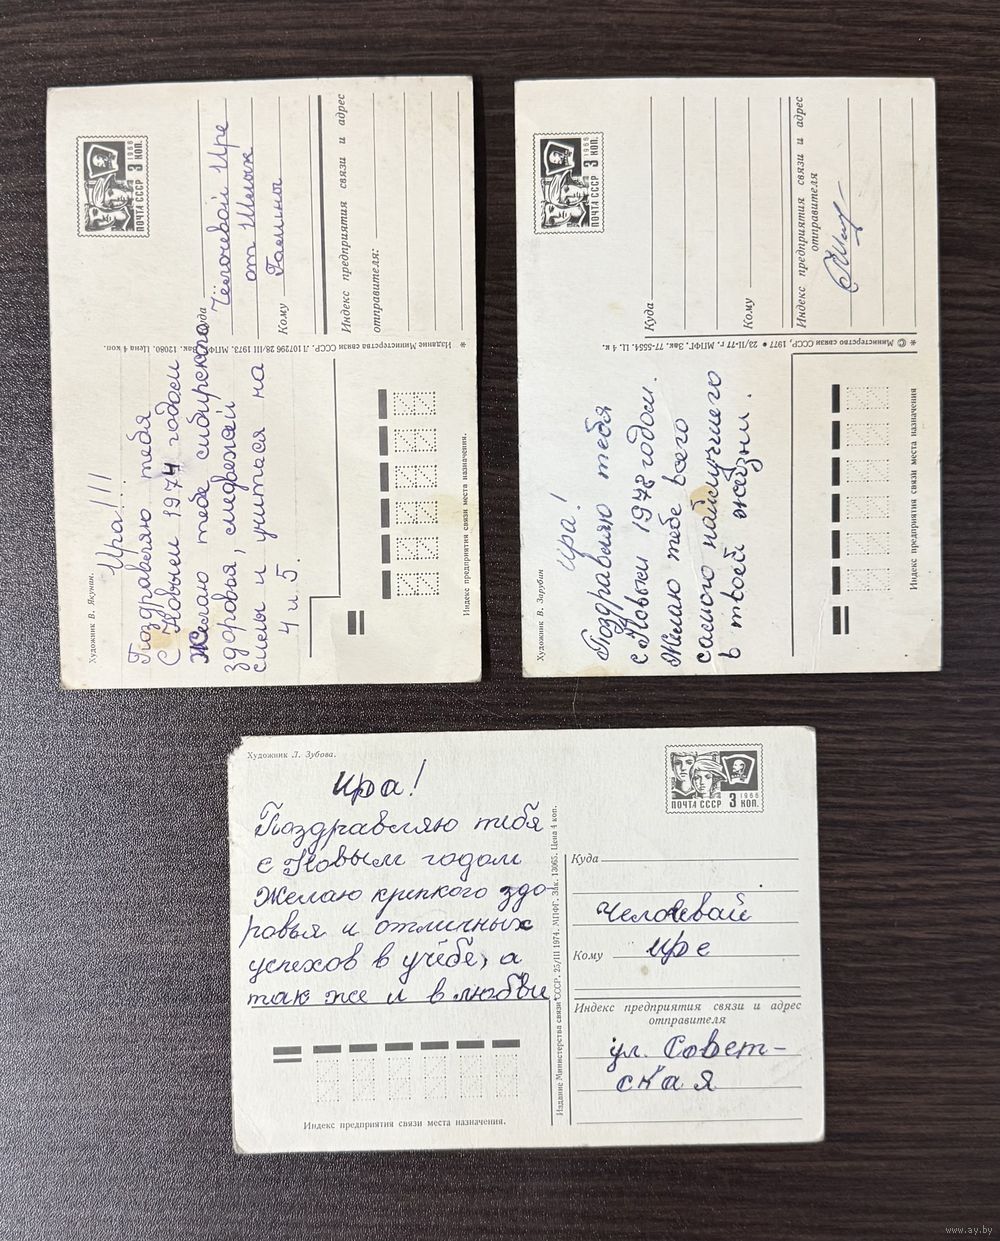 Художник В. Якунин.
Ира!!!
Поздравляю тебя
С Новым 1974 годом
Желаю тебе сибирского
здоровья, медвежей
силы и учиться на
4 и 5.
ПОЧТА СССР 3 КОП.
1966
Куда
Ире
от Шмык
Кому
Галины
Индекс предприятия связи и адрес
отправителя:
* Издание Министерства связи СССР. Л 107296 28/III 1973. МПФГ. Зак. 12080. Цена 4 коп.
Индекс предприятия связи места назначения.
Художник В. Зарубин
Ира!
Поздравляю тебя
с Новым 1978 годом.
Желаю тебе всего
самого наилучшего
в твоей жизни.
ПОЧТА СССР 3 КОП.
1966
Куда
Кому
Индекс предприятия связи и адрес
отправителя
* © Министерство связи СССР, 1977 • 23/II-77 г. МПФГ. Зак. 77-5554. Ц. 4 к.
Индекс предприятия связи места назначения
Художник Л. Зубова.
Ира!
Поздравляю тебя
с Новым годом
Желаю крепкого здо-
ровья и отличных
успехов в учёбе, а
так же и в любви
ПОЧТА СССР 3 КОП.
1966
Куда
Человевай
Кому Ире
Индекс предприятия связи и адрес
отправителя
ул. Совет-
ская
Издание Министерства связи СССР. 25/III 1974. МПФГ. Зак. 13065. Цена 4 коп.
Индекс предприятия связи места назначения.
www.ay.by